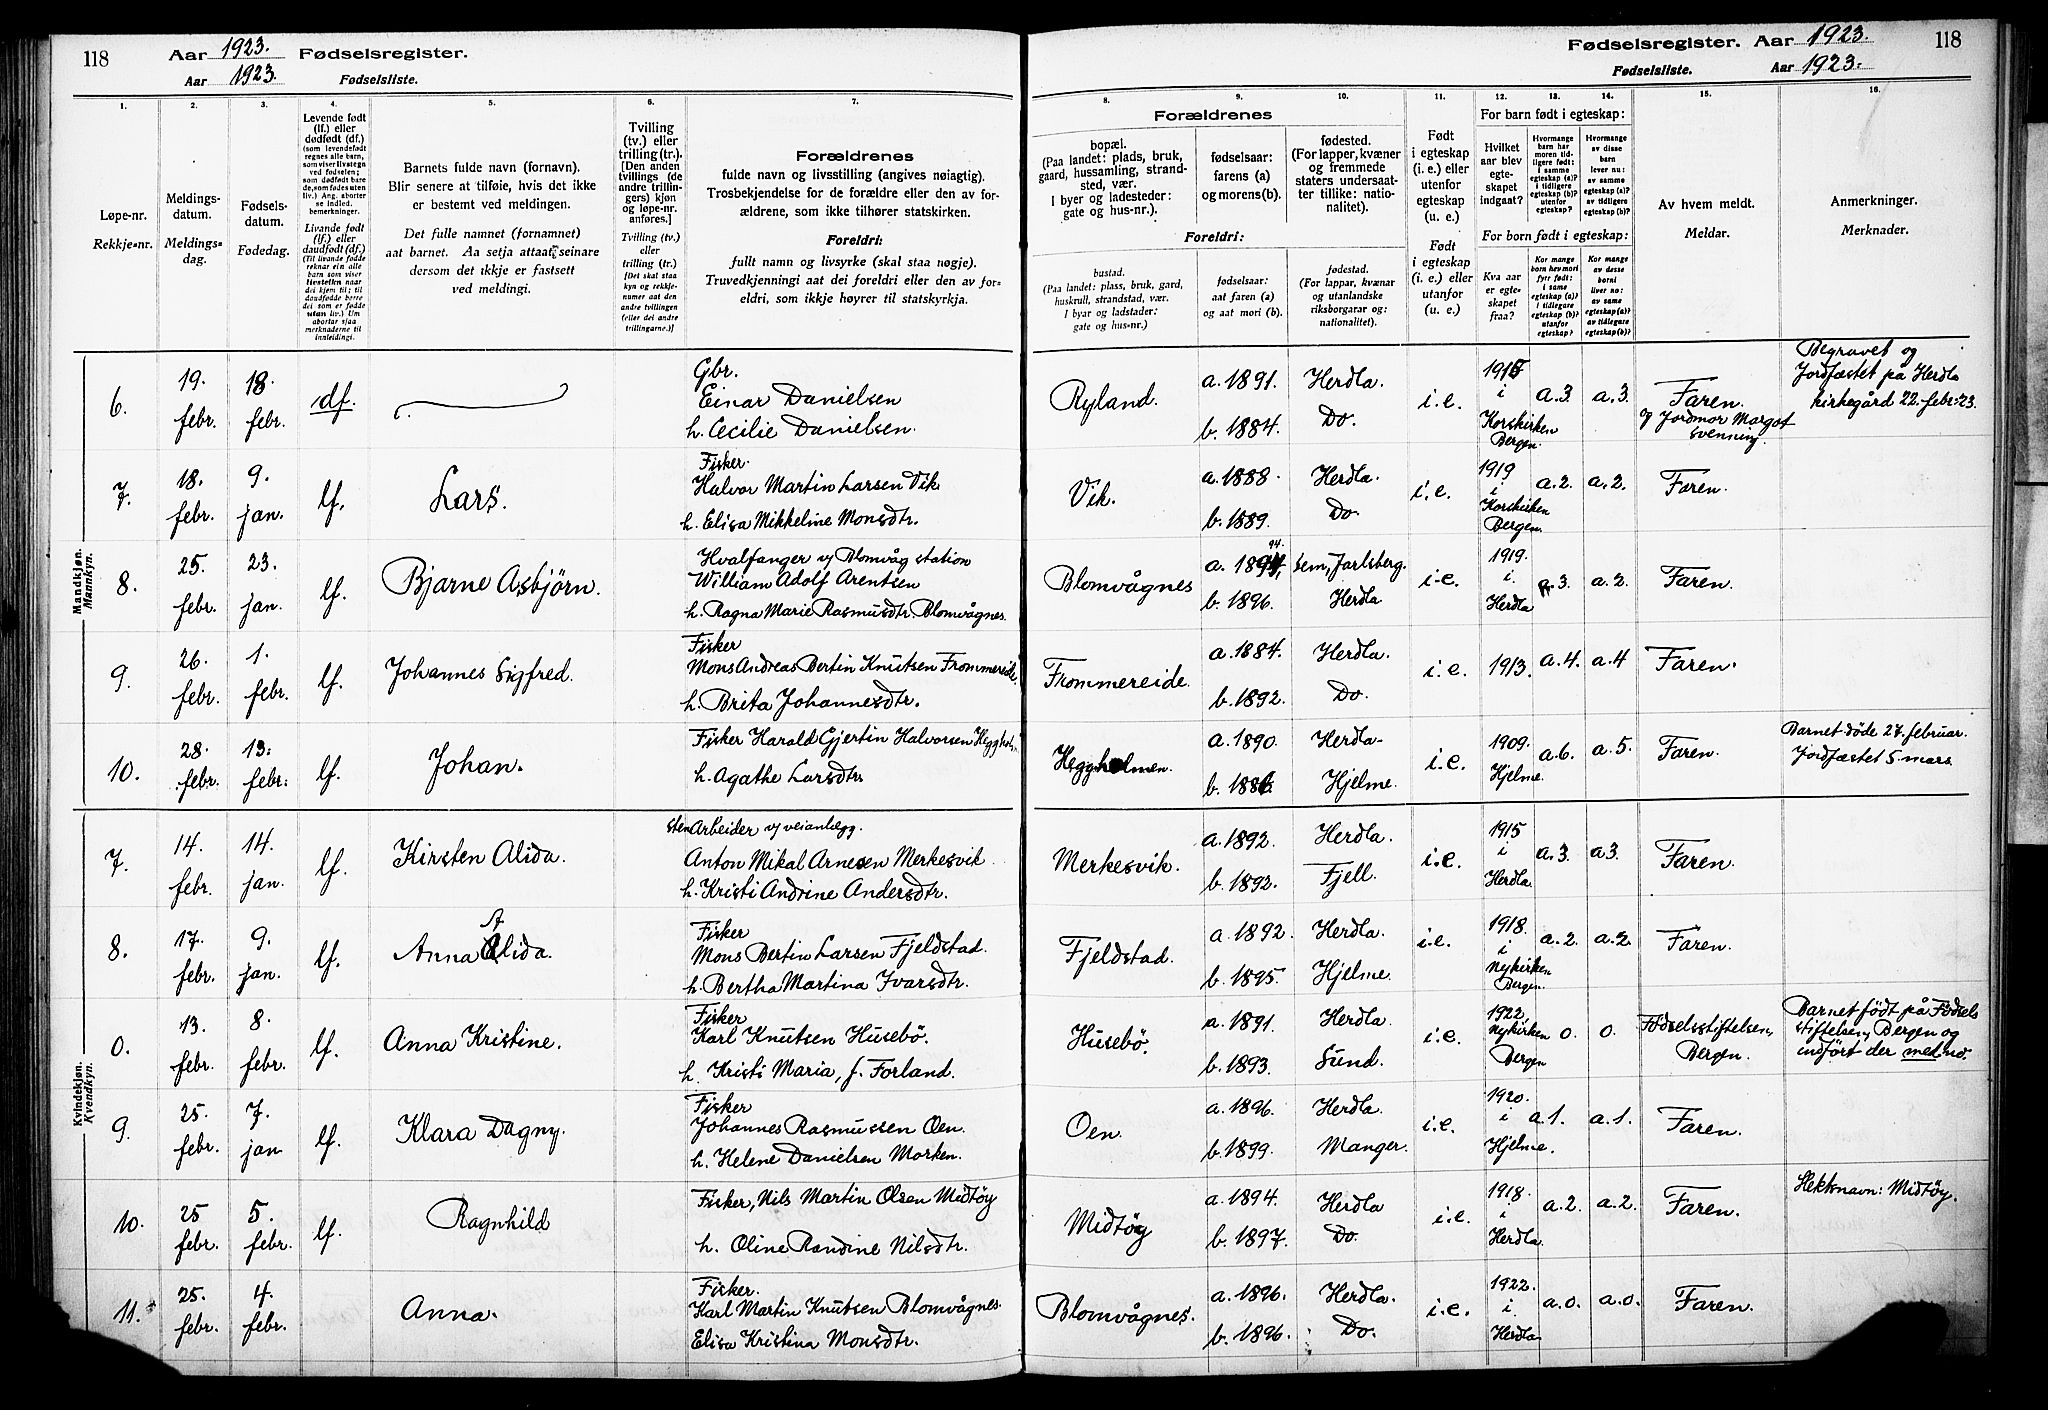 118 Aar 1923. Fødselsregister.
Aar 1923. Fødselsliste.
Fødselsregister. Aar 1923. 118
Fødselsliste. Aar 1923.
1.
Løpe-nr.
Rekkje-nr.
2.
Meldings-
datum.
Meldings-
dag.
3.
Fødsels-
datum.
Fødedag.
4.
Levende født
(lf.) eller
dødfødt (df.)
(som levendefødt
regnes alle barn,
som viser livstegn
ved fødselen;
som dødfødt bare
de, som fødes uten
liv.) Ang. aborter
se indled.
bemerkninger.
Livande født
(lf.) eller
daudfødt (df.)
(Til livande fødde
reknar ein alle
barn som viser
livsteikn naar
dei kjem til; til
daudfødde berre
dei som er fødde
utan liv.) Um
abortar sjaa
merknaderne til
innleidingi.
5.
Barnets fulde navn (fornavn).
Blir senere at tilføie, hvis det ikke
er bestemt ved meldingen.
Det fulle namnet (fornamnet)
aat barnet. Aa setja attaat seinare
dersom det ikkje er fastsett
ved meldingi.
6.
Tvilling
(tv.) eller
trilling (tr.).
[Den anden
tvillings (de
andre trillin-
gers) kjøn
og løpe-nr.
anføres.]
Tvilling (tv.)
eller
trilling (tr.)
[Det skal staa
kyn og rekkje-
numer aat den
andre tvillingen
(eller dei andre
trillingarne.)]
7.
Forældrenes
fulde navn og livsstilling (angives nøiagtig).
Trosbekjendelse for de forældre eller den av for-
ældrene, som ikke tilhører statskirken.
Foreldri:
fullt namn og livsyrke (skal staa nøgje).
Truvedkjenningi aat dei foreldri eller den av for-
eldri, som ikkje høyrer til statskyrkja.
8.
Forældrenes
bopæl.
(Paa landet: plads, bruk,
gaard, hussamling, strand-
sted, vær.
I byer og ladesteder:
gate og hus-nr.).
Foreldri:
bustad.
(Paa landet: plass, bruk, gard,
huskrull, strandstad, vær.
I byar og ladstader:
gate og hus-nr.)
9.
fødselsaar:
farens (a)
og morens (b).
fødselsaar:
aat faren (a)
og aat mori (b).
10.
fødested.
(For lapper, kvæner
og fremmede
staters undersaat-
ter tillike: natio-
nalitet).
fødestad.
(For lappar, kvænar
og utanlandske
riksborgarar og:
nationalitet).
11.
Født
i egteskap
(i. e.) eller
utenfor
egteskap
(u. e.)
Født
i egteskap
(i. e.) eller
utanfor
(u. e.)
For barn født i egteskap:
12.
Hvilket
aar blev
egte-
skapet
indgaat?
13.
Hvormange
barn har
moren tid-
ligere født:
i samme
egteskap (a)?
i tidligere
egteskap (b)?
utenfor
egteskap?
14.
Hvormange
av disse
barn
lever nu:
av samme
egteskap (a)?
av tidligere
egteskap (b)?
For born født i egteskap:
Kva aar
er egte-
skapet
fraa?
Kor mange
born hev mori
fyrr født:
i same
egteskap (a)?
i tidlegare
egteskap (b)?
utanfor
egteskap?
Kor mange
av desse
borni
liver no:
av same
egteskap (a)?
av tidlegare
egteskap (b)?
15.
Av hvem meldt.
Meldar.
16.
Anmerkninger.
Merknader.
Mandkjøn.
Mannkyn.
6.
19.
febr.
18.
febr.
df.
Gbr.
Einar Danielsen
h. Cecilie Danielsen.
Ryland.
a. 1891.
b. 1884.
Herdla.
Do.
i.e.
i
Korskirken
Bergen.
a.3
a.3.
Faren.
og Jordmor Margot
Svenning.
Begravet og
Jordfæstet på Herdla
kirkegård 22. febr. 23.
7.
18.
febr.
9.
jan.
lf.
Lars.
Fisker.
Halvor Martin Larsen Vik
h. Elisa Mikkeline Monsdtr.
Vik.
a. 1888.
b. 1889.
Herdla.
Do.
i.e.
1919
i
Korskirken
Bergen.
a.2.
a.2.
Faren.
8.
25.
febr.
23.
jan.
lf.
Bjarne Asbjörn.
Hvalfanger v/ Blomvåg station
William Adolf Arentsen
h. Ragna Marie Rasmusdtr. Blomvågnes.
Blomvågnes
94.
b. 1896.
Sem, Jarlsberg.
Herdla
i.e.
1919.
i.
Herdla
a.3.
a.2.
Faren.
9.
26.
febr.
1.
febr.
lf.
Johannes Sigfred.
Fisker
Mons Andreas Bertin Knutsen Frommereide,
h. Brita Johannesdtr.
Frommereide.
a. 1884.
b. 1892.
Herdla.
Do.
i.e.
1913.
a.4.
a.4
Faren.
10.
28.
febr.
13.
febr.
lf.
Johan.
Fisker Harald Gjertin Halvorsen Heggholm.
h. Agathe Larsdtr.
Heggholmen.
a. 1890.
Herdla
Hjelme.
i.e.
1909.
i
Hjelme.
a.6.
a.5.
Faren.
Barnet döde 27. februar.
Jordfæstet 5. mars.
Kvindekjøn.
Kvendkyn.
7.
14.
febr.
14.
jan.
lf.
Kirsten Alida.
stenArbeider v/ veianlægg.
Anton Mikal Arnesen Merkesvik
h. Kristi Andrine Andersdtr.
Merkesvik.
a. 1892.
b. 1892.
Herdla.
Fjell.
i.e.
1915
i
Herdla
a.3.
a3.
Faren.
8.
17.
febr.
9.
jan.
lf.
A
Anna Alida.
Fisker
Mons Bertin Larsen Fjeldstad.
h. Bertha Martina Ivarsdtr.
Fjeldstad.
a. 1892.
b. 1895.
Herdla.
Hjelme.
i.e.
1918.
i
Nykirken
Bergen.
a.2.
a.2.
Faren.
0.
13.
febr.
8.
febr.
lf.
Anna Kristine.
Fisker
Karl Knutsen Husebö.
h. Kristi Maria, f. Forland.
Husebö.
a. 1891.
b. 1893.
Herdla.
Sund.
i.e.
1922,
Nykirken
Bergen
0.
0.
Födselsstiftelsen,
Bergen.
Barnet födt på Födsels
stiftelsen, Bergen og
indfört der med no.
9.
25.
febr.
7.
jan.
lf.
Klara Dagny.
Fisker
Johannes Rasmussen Oen.
h. Helene Danielsen Morken.
Oen.
a. 1896.
b. 1899.
Herdla.
Manger.
i.e.
1920.
i
Hjelme.
a.1.
a.1.
Faren.
10.
25
febr.
5.
febr.
lf.
Ragnhild
Fisker, Nils Martin Olsen Midtöy
h. Oline Randine Nilsdtr.
Midtöy
a. 1894.
b. 1897.
Herdla
Do.
i.e.
1918.
i
Herdla.
a.2.
a.2.
Faren.
Slektsnavn: Midtöy.
11.
25.
febr.
4.
febr.
Anna.
Fisker.
Karl Martin Knutsen Blomvågnes.
Elisa Kristina Monsdtr.
Blomvågnes.
a. 1896.
b. 1896.
Herdla.
Do.
i.e.
1922.
i.
Herdla
a.0.
a.0.
Faren.